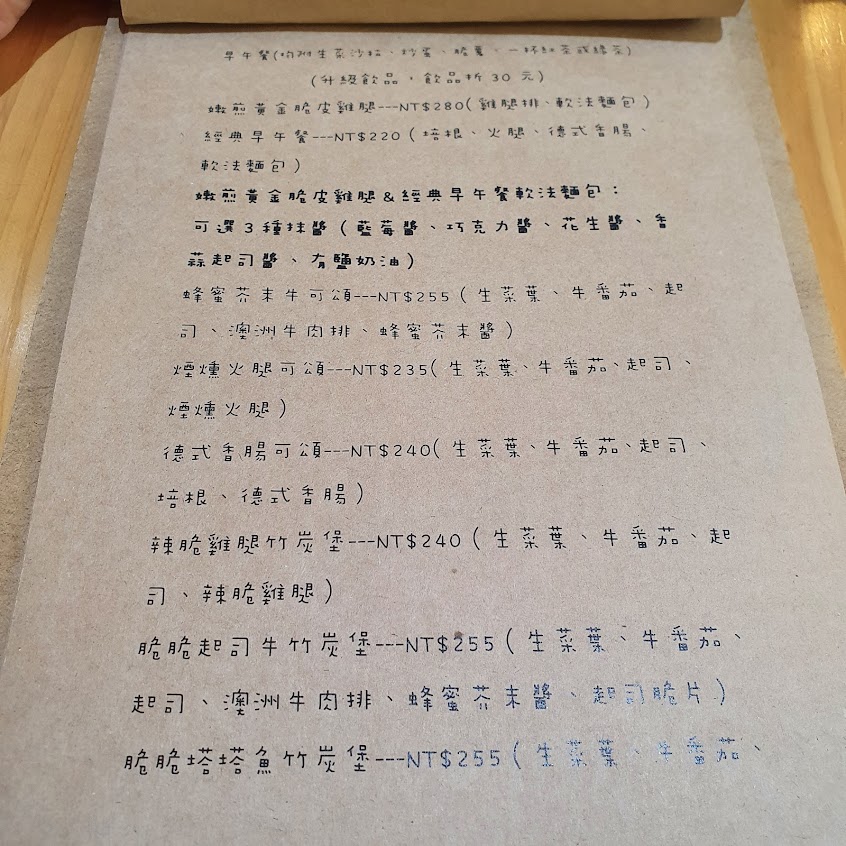 早午餐(均附生菜沙拉、炒蛋、脆薯、一杯紅茶或綠茶)
(升級飲品，飲品折30元)
嫩煎黃金脆皮雞腿---NT$280(雞腿排、軟法麵包)
經典早午餐---NT$220(培根、火腿、德式香腸、
軟法麵包)
嫩煎黃金脆皮雞腿&經典早午餐軟法麵包：
可選3種抹醬(藍莓醬、巧克力醬、花生醬、香
蒜起司醬、有鹽奶油)
蜂蜜芥末牛可頌---NT$255(生菜葉、牛番茄、起
司、澳洲牛肉排、蜂蜜芥末醬)
煙燻火腿可頌---NT$235(生菜葉、牛番茄、起司、
煙燻火腿)
德式香腸可頌---NT$240(生菜葉、牛番茄、起司、
培根、德式香腸)
辣脆雞腿竹炭堡---NT$240(生菜葉、牛番茄、起
司、辣脆雞腿)
脆脆起司牛竹炭堡---NT$255(生菜葉、牛番茄、
起司、澳洲牛肉排、蜂蜜芥末醬、起司脆片)
脆脆塔塔魚竹炭堡---NT$255(生菜葉、牛番茄、